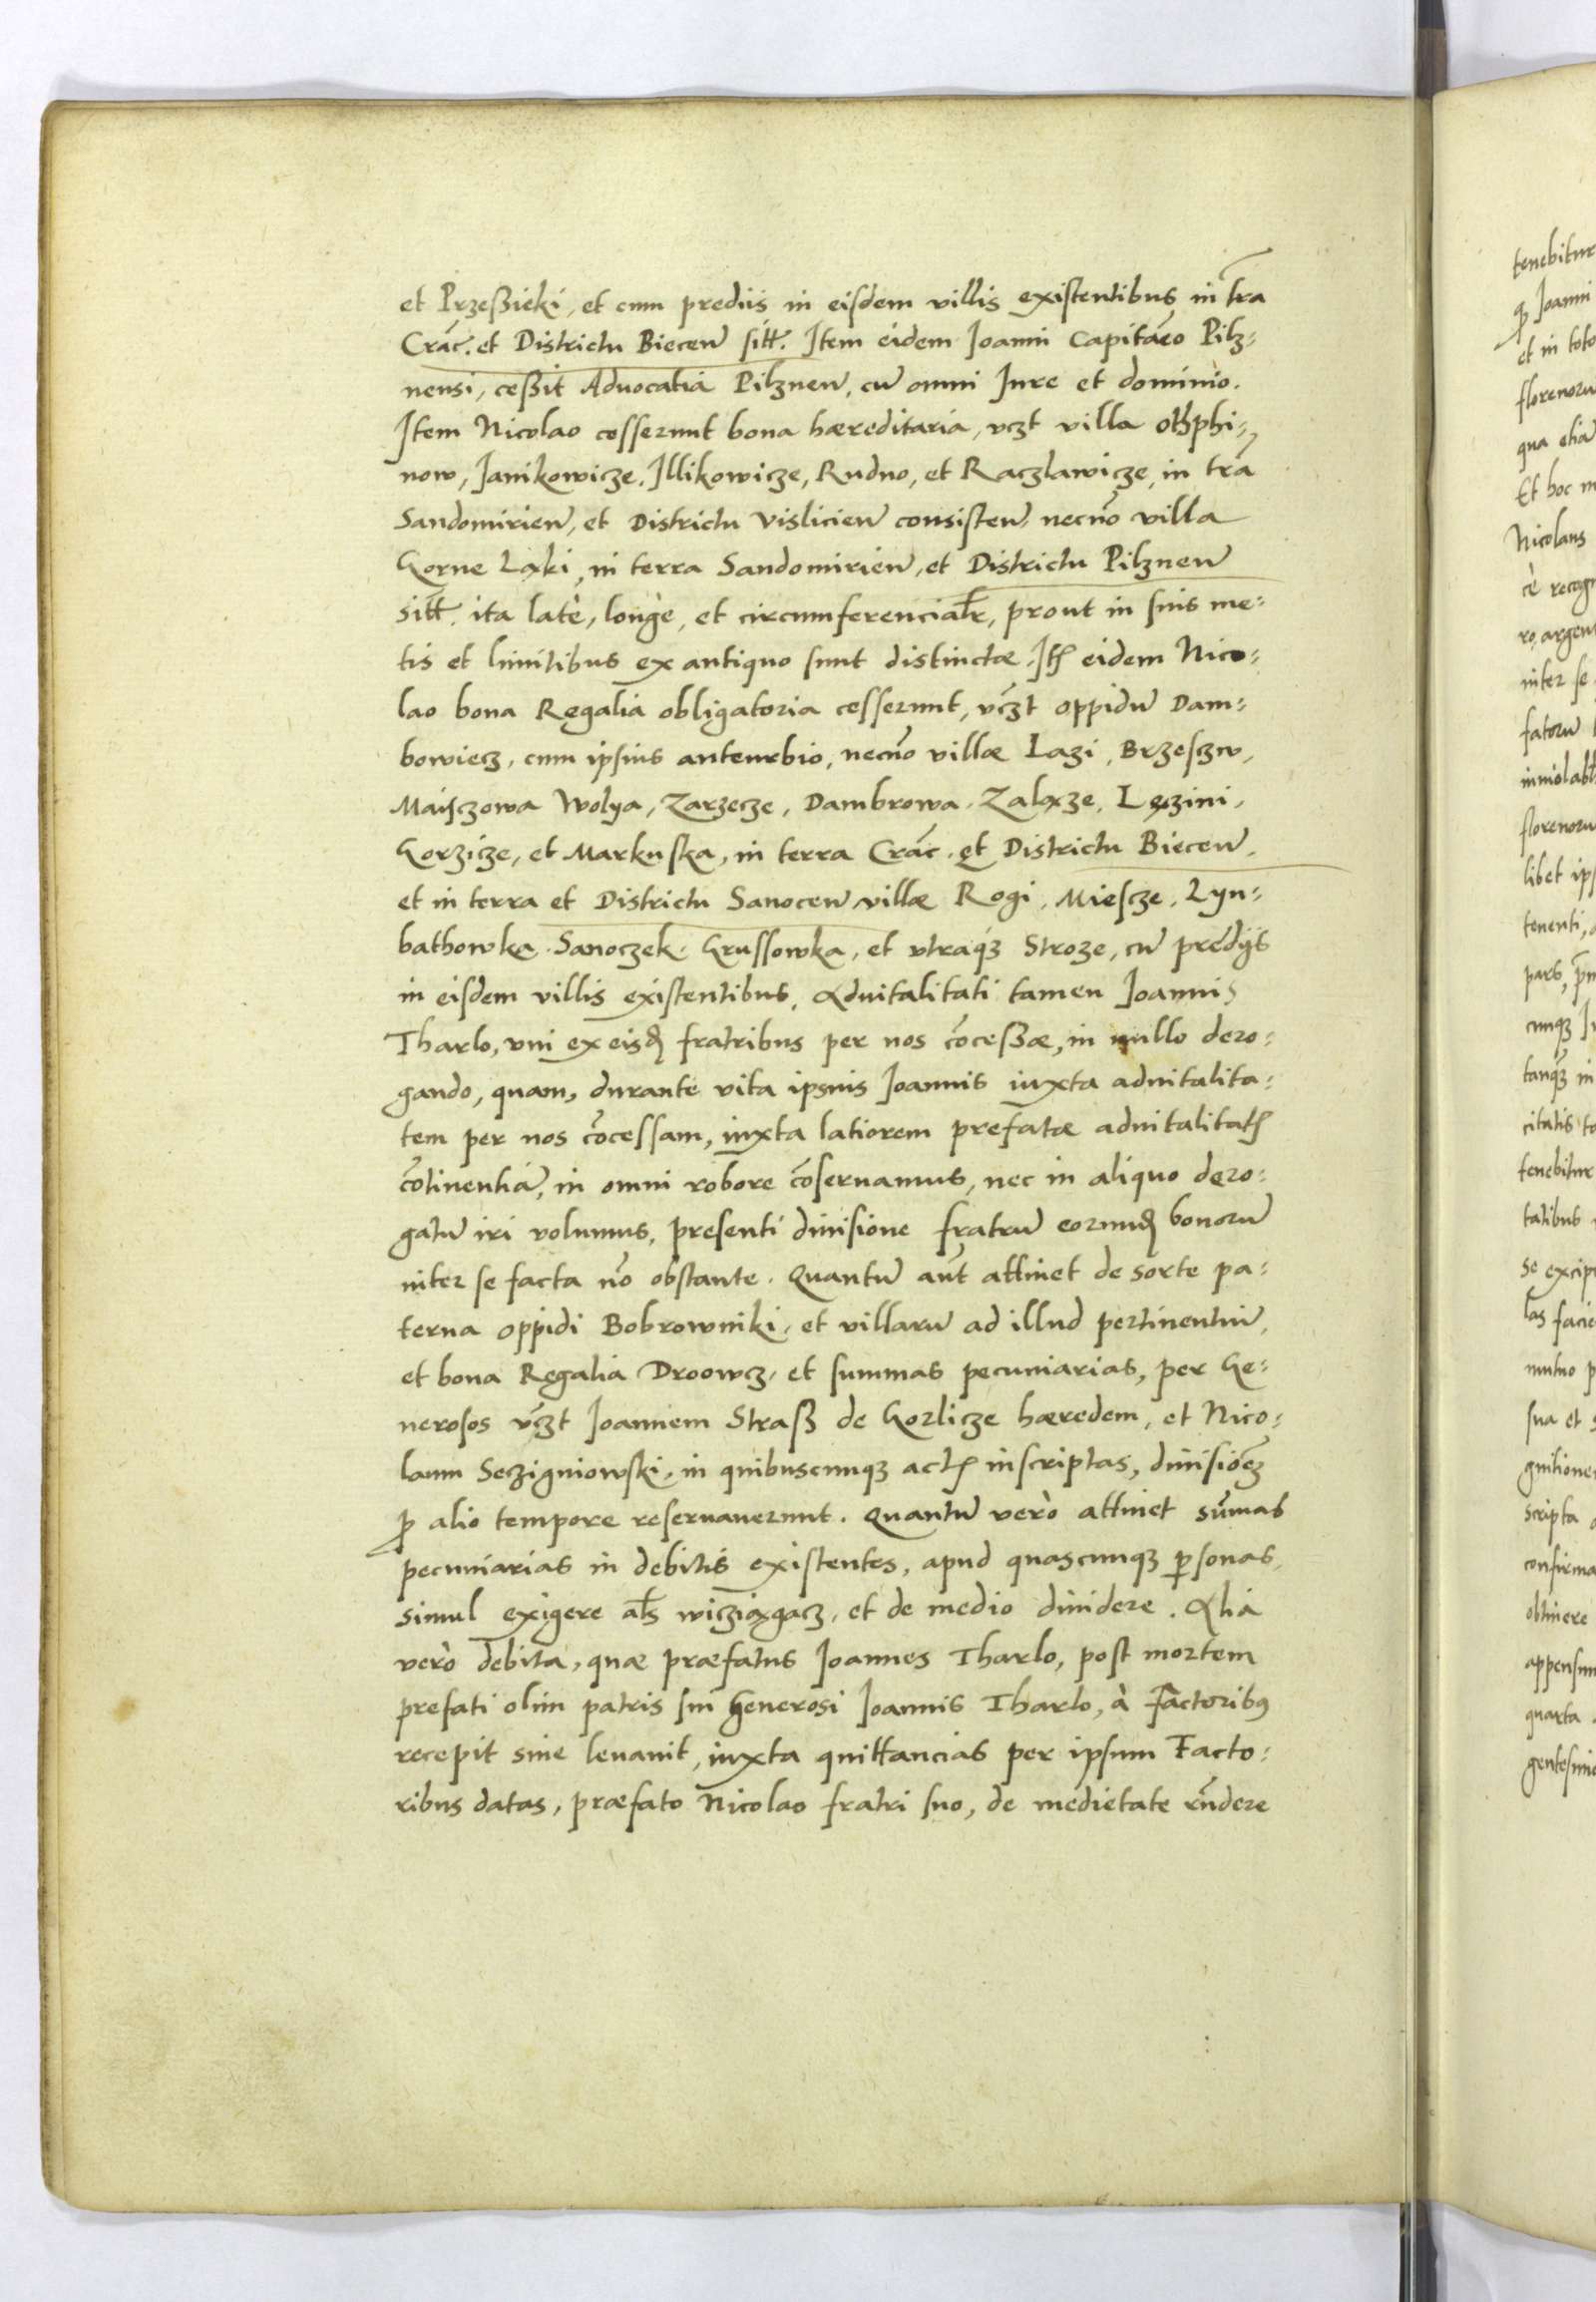 et Przeßieki, et cum prediis in eisdem villis existentibus in tra
Crac̄. et Districtu Biecen̄ sitt̄. Item eidem Joanni Capitān̄eo Pilz=
nensi, ceßit Advocatia Pilznen̄, cū omni Jure et dominio.
Item Nicolao cesserunt bona hæreditaria, vczt villa Othphi=
now, Janikowicze, Illikowicze, Rudno, et Raczlawicze, in trā
Sandomirien̄, et Districtu Vislicien̄ consisten̄, necnō villa
Gorne Ląki, in terra Sandomirien̄, et Districtu Pilznen̄
sitt̄. ita late, longe, et circumferencialr̄, prout in suis me=
tis et limitibus ex antiquo sunt distinctæ. Itꝫ eidem Nico=
lao bona Regalia obligatoria cesserunt, vc̄zt oppidū Dam=
bowiecz, cum ipsius anteurbio, necnō villæ Lazi, Brzesczw,
Maijczowa Wolya, Zarzecze, Dambrowa, Zaląze, Lęzini,
Gorzicze, et Markuska, in terra Crac̄. et Districtu Biecen̄,
et in terra et Districtu Sanocen̄ villæ Rogi, Miescze, Lyn=
bathowka, Sanoczek, Grussowka, et vtraqꝫ Stroze, cū predijs
in eisdem villis existentibus, Aduitalitati tamen Joannis
Tharlo, vni ex eisd̄ fratribus per nos cōceßæ, in nullo dero=
gando, quam, durante vita ipsius Joannis iuxta aduitalita=
tem per nos cōcessam, iuxta latiorem prefatæ aduitalitatꝫ
cōtinentiā, in omni robore cōseruamus, nec in aliquo dero=
gatū iri volumus, presenti diuisione fratrū eorund̄ bonorū
inter se facta nō obstante. Quantū aūt attinet de sorte pa=
terna oppidi Bobrowniki, et villarū ad illud pertinentiū,
et bona Regalia Droowcz, et summas pecuniarias, per Ge=
nerosos vc̄zt Joannem Straß de Gorlicze hæredem, et Nico=
laum Seczigniowski, in quibuscunqꝫ actꝫ inscriptas, diuisiōeꝫ
ꝓ alio tempore reseruauerunt. Quantū verò attinet sūmas
pecuniarias in debitis existentes, apud quascunqꝫ ꝑsonas,
simul exigere als̄ wicziągacz, et de medio diuidere. Alia
verò debita, quæ præfatus Joannes Tharlo, post mortem
prefati olim patris sui Generosi Joannis Tharlo, à Factoribꝰ
recepit siue leuauit, iuxta quittancias per ipsum Facto=
ribus datas, præfato Nicolao fratri suo, de medietate rn̄dere